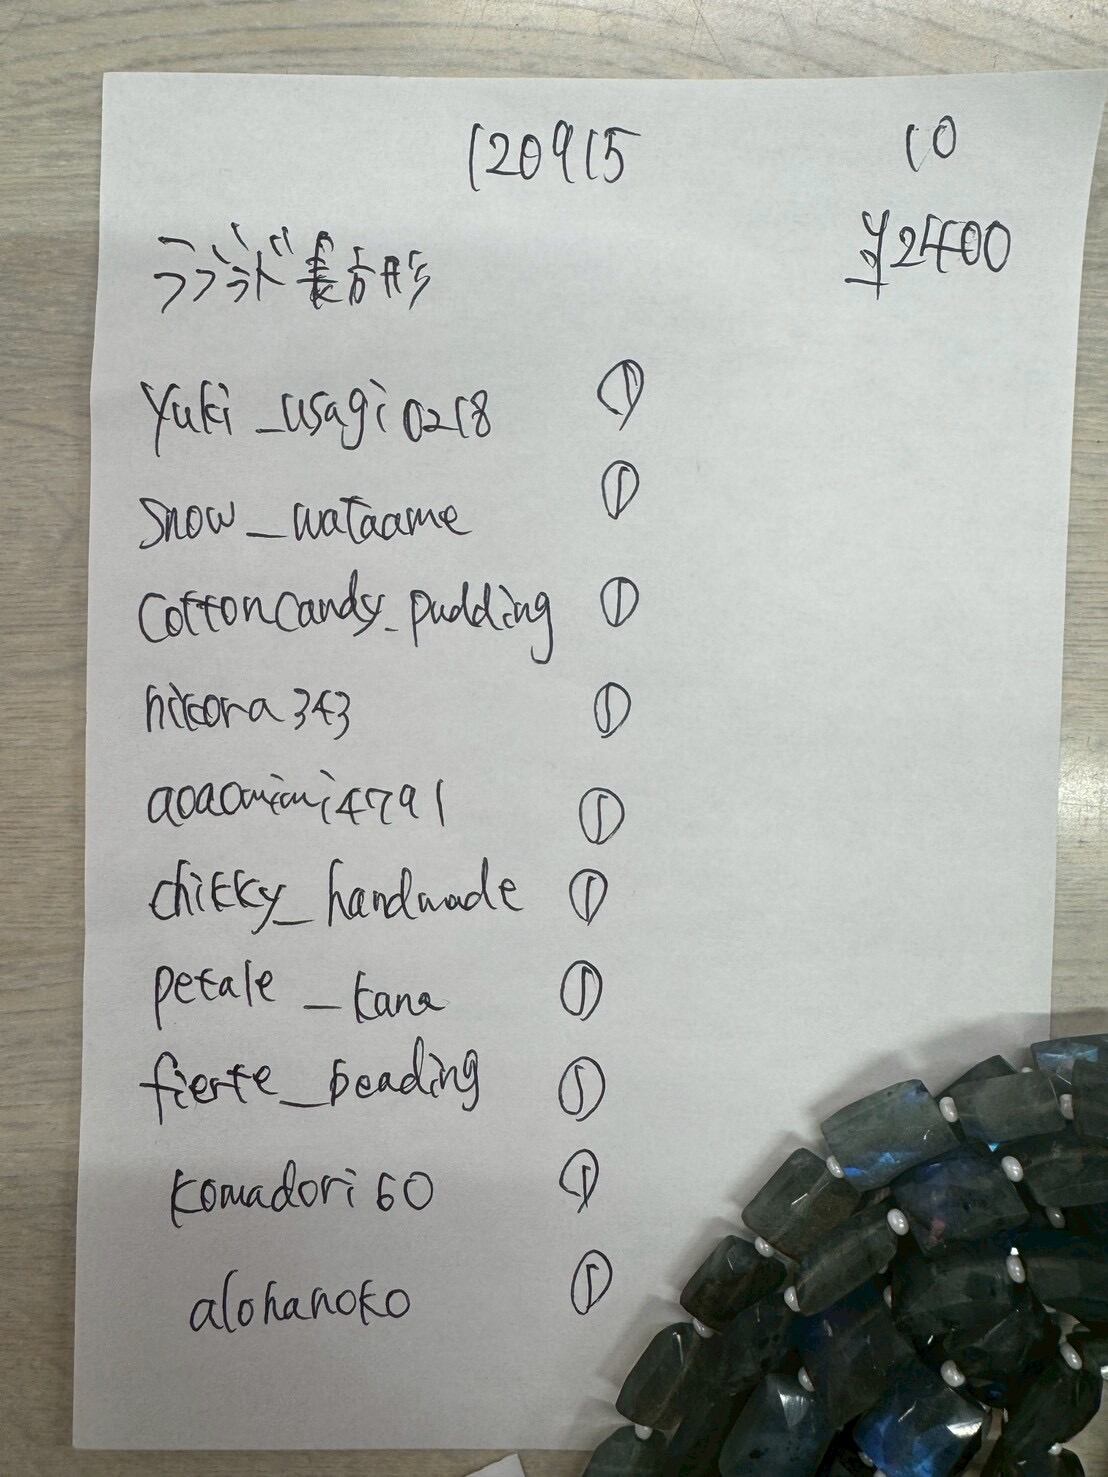 120915 10
ラブラド長方形 ¥2400
Yuki_usagi0218 ①
Snow_wataame ①
Cottoncandy_pudding ①
nikora343 ①
aoaomimi4791 ①
chikky_handmade ①
petale_kana ①
fierte_beading ①
komadori60 ①
alohanoko ①